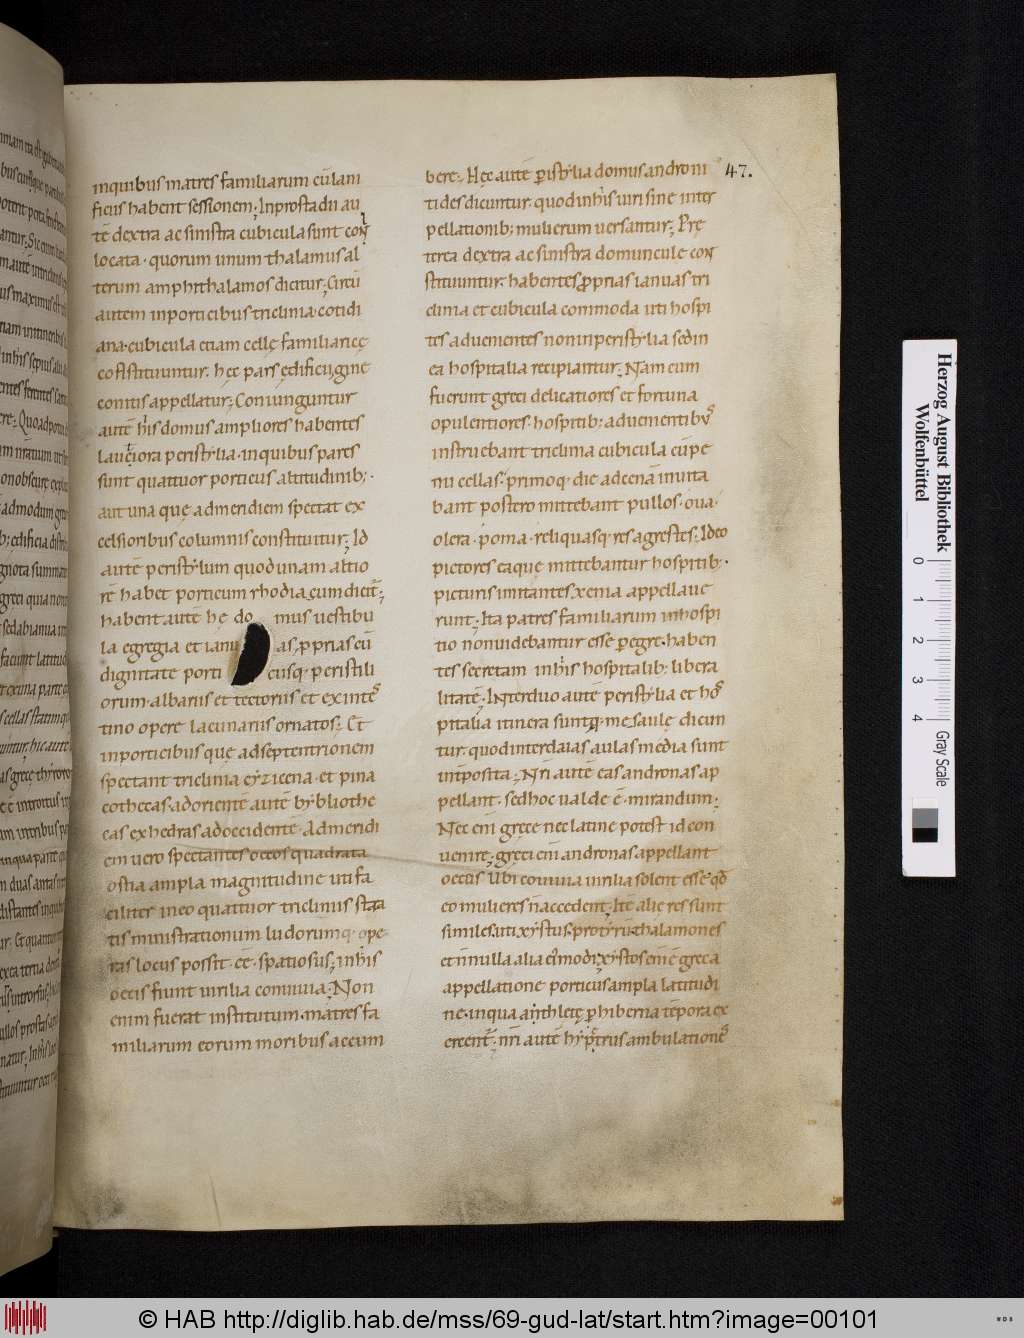 47.
inquibus matres familiarum cū lani
ficus habent sessionem; Inprostadii au
tē dextra ac sinistra cubicula sunt con
locata · quorum unum thalamus al
terum amphithalamos dicitur; Circū
autem inporticibus triclinia · cotidi
ana · cubicula etiam cellę familiaricę
constituuntur. hęc pars ędificii, ginę
conitis appellatur; Coniunguntur
autē his domus ampliores habentes
lautiora peristylia · inquibus pares
sunt quattuor porticus altitudinib; ·
aut una quę admeridiem spectat ex
celsioribus columnis constituitur; Id
autē peristylum quod unam altio
rē habet porticum rhodiacum dicit;
habent autē hę do mus uestibu
la egregia et ianu as, pprias cū
dignitate porti cusq· peristili
orum · albariis et tectoriis et ex intes
tino opere lacunariis ornatos; Et
inporticibus quę adseptentrionem
spectant triclinia cyzicena · et pina
cothecas · adorientē autē bybliothe
cas exhedras adoccidentē · Admeridi
em uero spectantes oecos quadrata
ostia ampla magnitudine uti fa
ciliter in eo quattuor tricliniis stra
tis ministrationum ludorumq· ope
ras locus possit · eē · spatiosus; inhis
oecis fiunt uirilia conuiuia; Non
enim fuerat institutum · matres fa
miliarum eorum moribus accum
bere; Hęc autē peristylia domus androni
tides dicuntur · quod inhis uiri sine inter
pellationib; mulierum uersantur; Prę
terea dextra ac sinistra domunculę con
stituuntur · habentes pprias ianuas tri
clinia et cubicula commoda uti hospi
tes aduenientes non inperistylia sed in
ea hospitalia recipiantur; Nam cum
fuerunt greci delicatiores et fortuna
opulentiores · hospitib; aduenientibus
instruebant triclinia cubicula cū pe
nu cellas · primoq· die adcenā inuita
bant postero mittebant pullos · oua ·
olera · poma · reliquasq· res agrestes; Ideo
pictores eaque mittebantur hospitib; ·
picturis imitantes, xenia appellaue
runt; Ita patres familiarum inhospi
tio non uidebantur esse pegre · haben
tes secretam inhis hospitalib; libera
litatē · Inter duo autē peristylia et hos
pitalia itinera sunt, quę mesaulę dicun
tur · quod inter daias aulas media sunt
intposita; Nri autē eas andronas ap
pellant · sed hoc ualde ē · mirandum;
Nec eni gręce nec latine potest id con
uenire; gręci eni andronas appellant
oecus ubi conuiuia uirilia solent esse qd
eo mulieres ñ accedent; Itē alię res sunt
similes · uti xystus · prothyru thalamones
et ñ nulla alia ei modi; xystos eni ē gręca
appellatione porticus ampla latitudi
ne · inqua athletę p hiberna tēpora ex
ercent; nri autē hypętrus ambulationes
Herzog August Bibliothek
Wolfenbüttel
0 1 2 3 4
Gray Scale
© HAB http://diglib.hab.de/mss/69-gud-lat/start.htm?image=00101